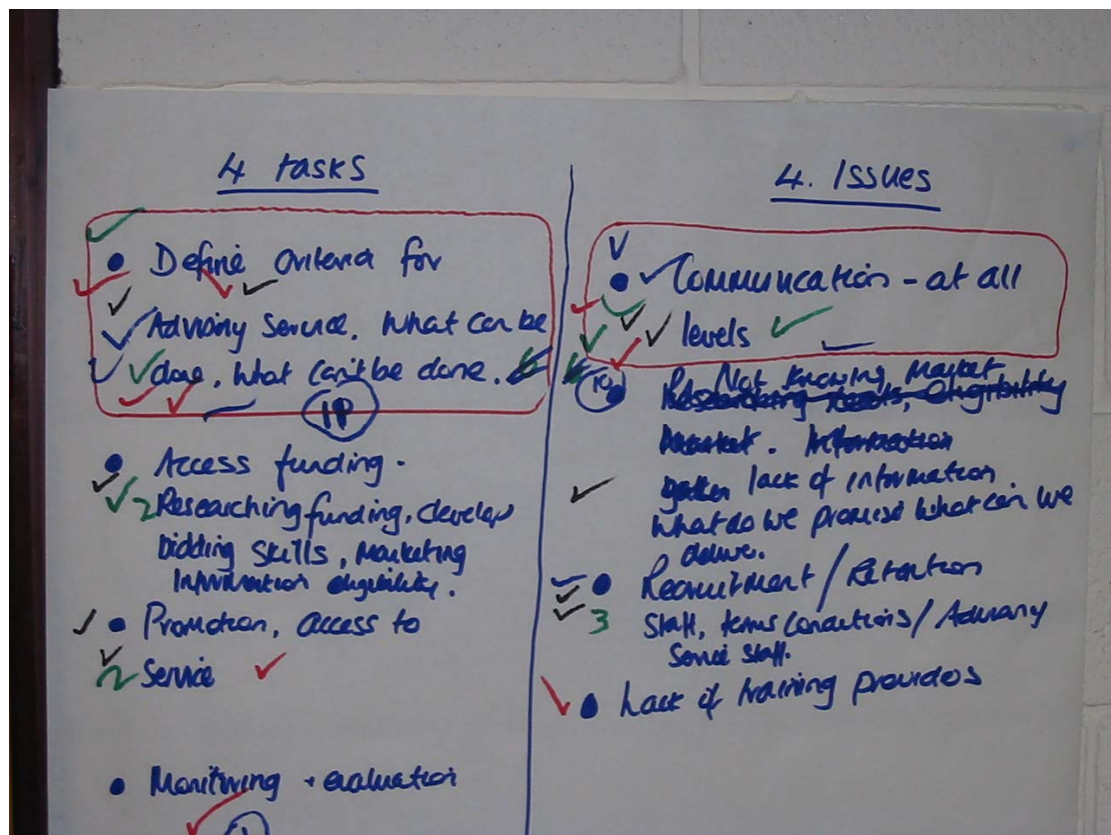 4 tasks
• Define criteria for
Advisory Service. What can be
done, What can't be done.
1P
• Access funding.
2 Researching funding, develop
bidding skills, Marketing
Information eligibility.
• Promotion, access to
2 Service
• Monitoring + evaluation
4. Issues
• Communication - at all
levels
Not knowing market
Researching needs, eligibility
market. Information
gather lack of information
What do we promise what can we
deliver.
• Recruitment / Retention
3 Staff, terms conditions / Advisory
Service staff.
• Lack of training providers